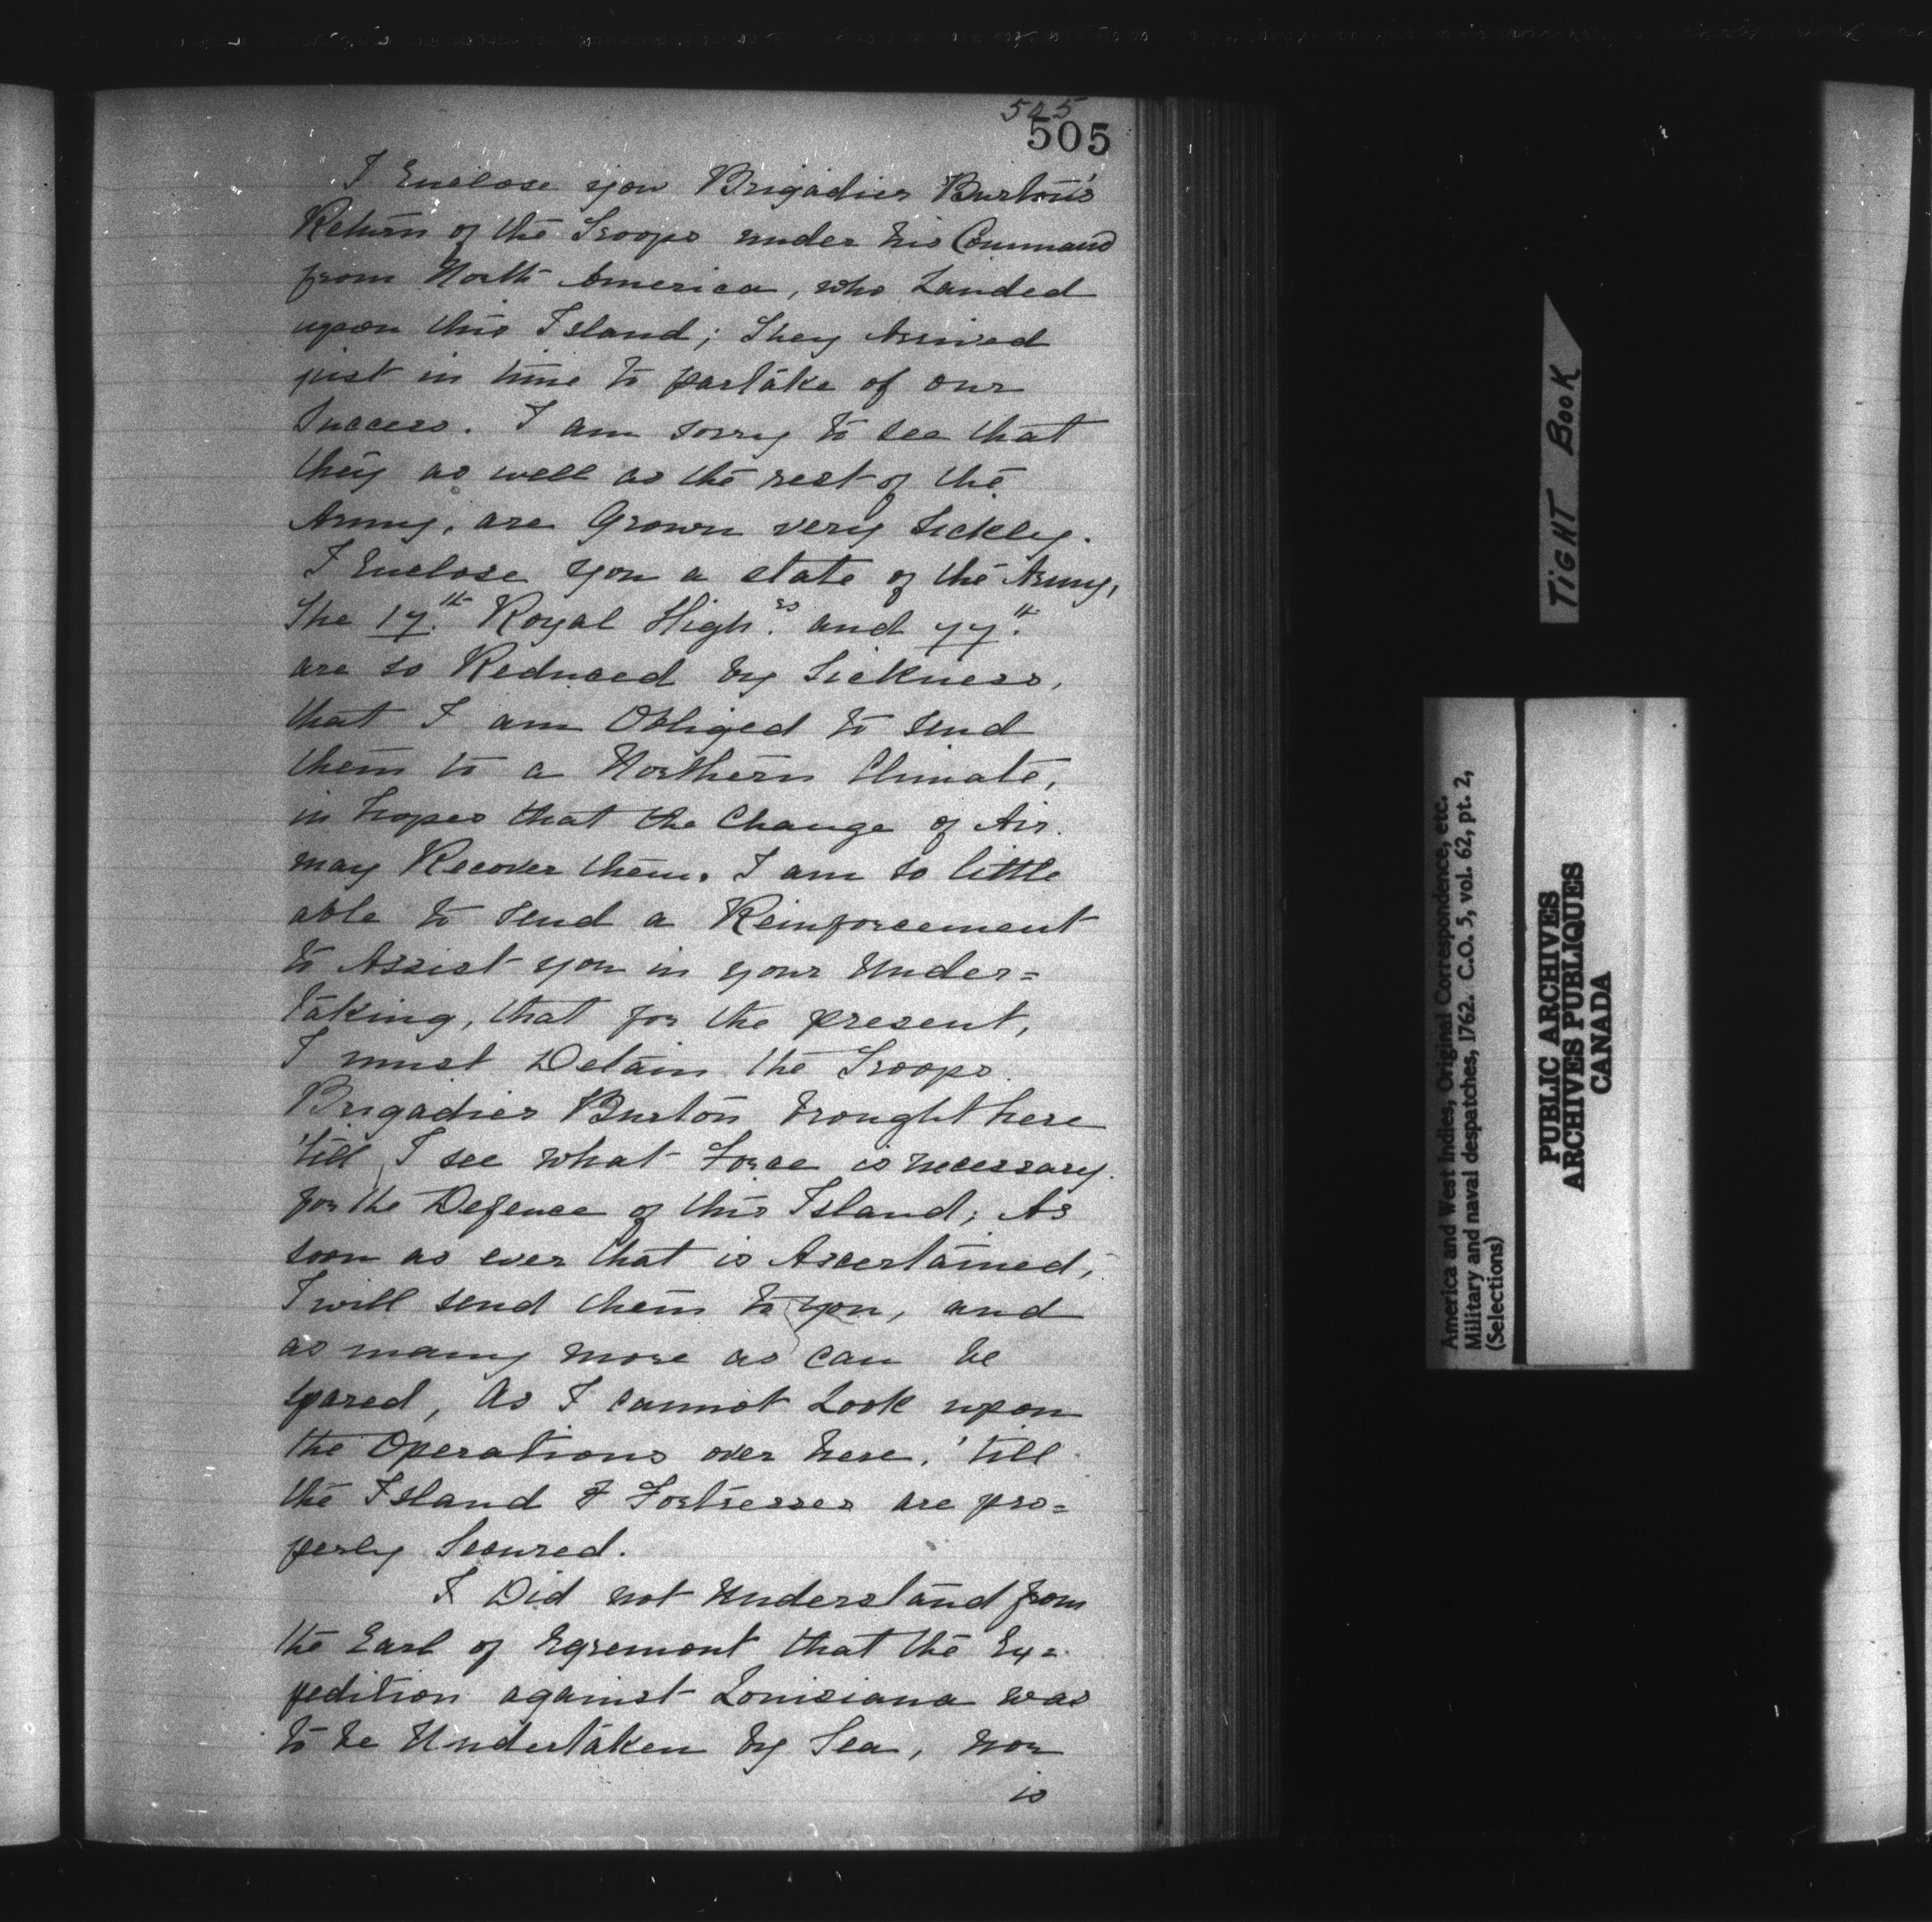 525
505
I Enclose you Brigadier Burton's
Return of the Troops under his Command
from North America, who Landed
upon this Island; They Arrived
just in time to partake of our
Success. I am sorry to see that
they as well as the rest of the
Army, are Grown very Sickly.
I Enclose you a state of the Army,
The 17th. Royal High.rs and 77th.
are so Reduced by Sickness,
that I am Obliged to send
them to a Northern Climate,
in hopes that the Change of Air
may Recover them. I am so little
able to send a Reinforcement
to Assist you in your Under=
taking, that for the present,
I must Detain the Troops
Brigadier Burton brought here
'till I see what Force is necessary
for the Defence of this Island; As
soon as ever that is Ascertained,
I will send them to you, and
as many more as can be
spared, As I cannot Look upon
the Operations over here, 'till
the Island & Fortresses are pro=
perly Secured.
I Did not Understand from
the Earl of Egremont that the Ex=
pedition against Louisiana was
to be Undertaken by Sea, nor
is
TIGHT BOOK
America and West Indies, Original Correspondence, etc.
Military and naval despatches, 1762. C.O. 5, vol. 62, pt. 2,
(Selections)
PUBLIC ARCHIVES
ARCHIVES PUBLIQUES
CANADA